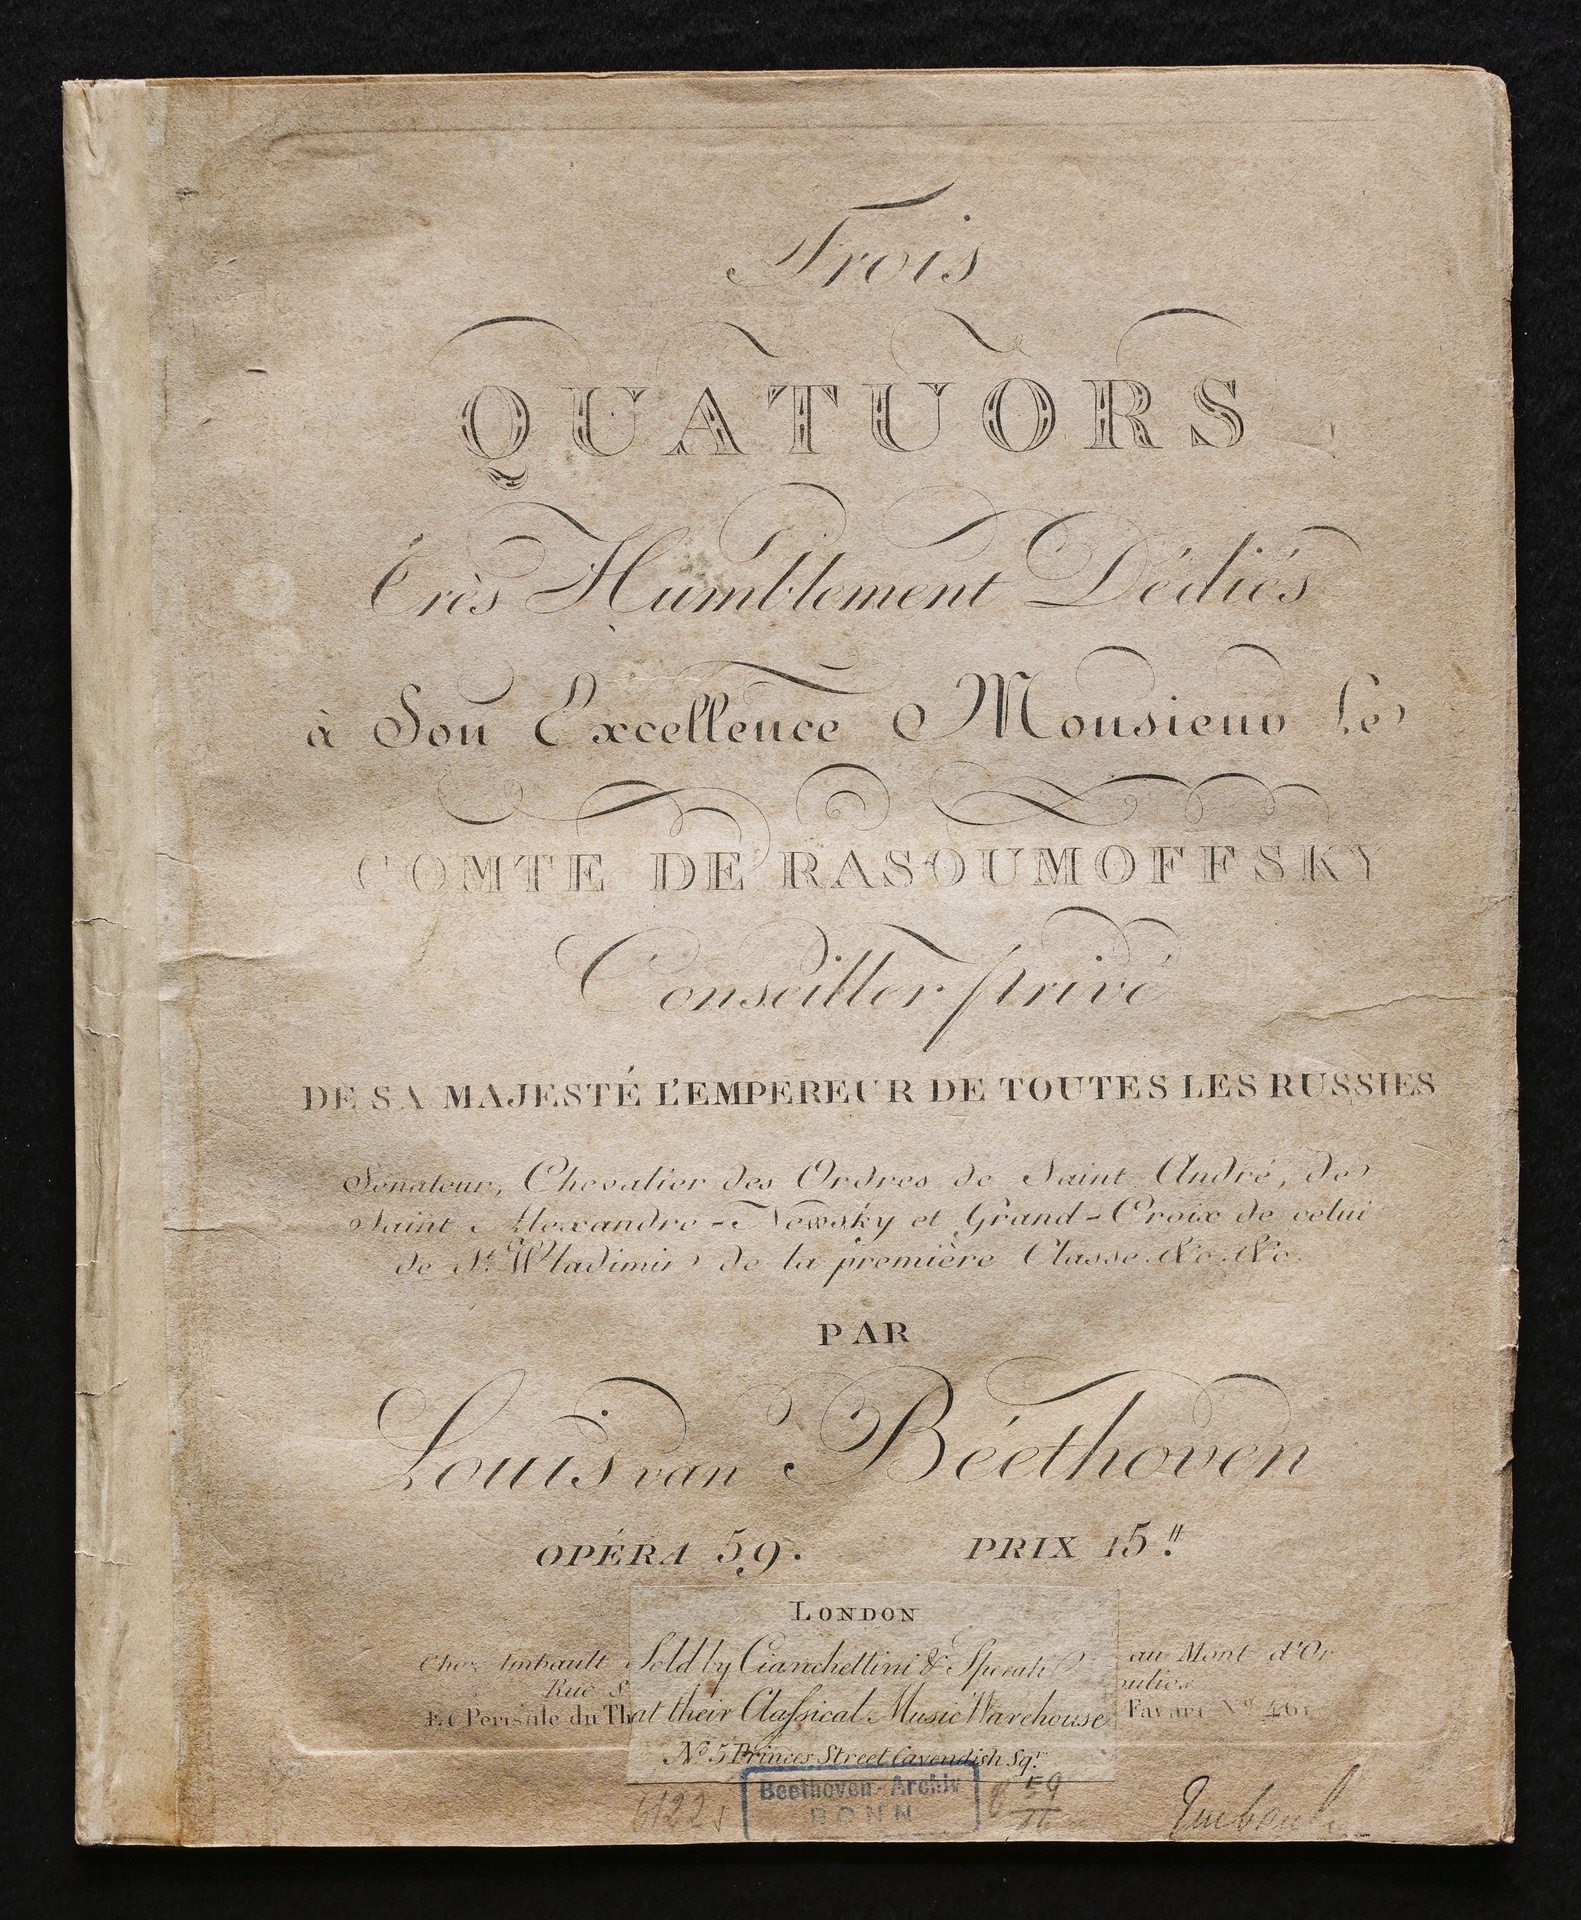 Trois
QUATUORS
très Humblement Dédiés
à Son Excellence Monsieur Le
COMTE DE RASOUMOFFSKY
Conseiller privé
DE SA MAJESTÉ L'EMPEREUR DE TOUTES LES RUSSIES
Senateur, Chevalier des Ordres de Saint André, de
Saint Alexandre-Newsky et Grand-Croix de celui
de St. Wladimir de la première Classe &c. &c.
PAR
Louis van Béethoven
OPÉRA 59. PRIX 15.tt
LONDON
Chez Imbault Sold by Cianchettini & Sperati au Mont d'Or
Rue S
Et Peristile du Th at their Classical Music Warehouse Favart No. 461
No. 5 Princes Street Cavendish Sqr.
Beethoven-Archiv
BONN
59
Imbault